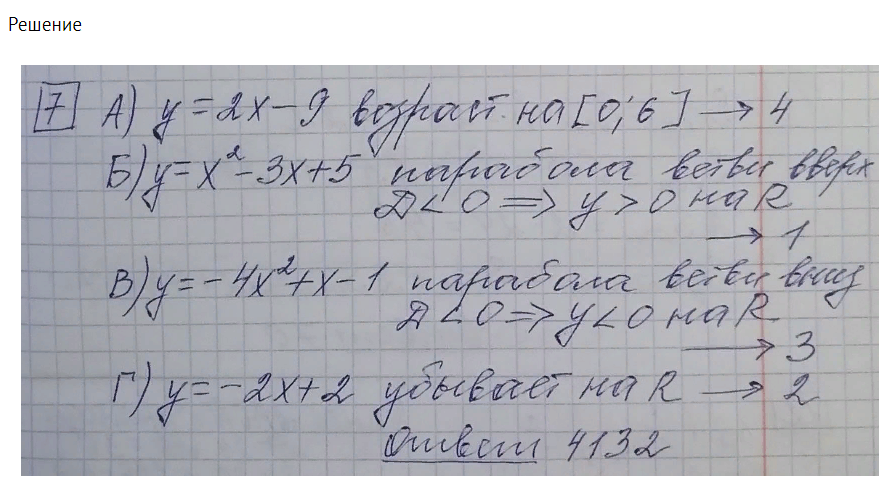 Решение
7 А) y = 2x - 9 возраст. на [0; 6] → 4
Б) y = x² - 3x + 5 парабола ветви вверх
Д < 0 => y > 0 на R
→ 1
В) y = -4x² + x - 1 парабола ветви вниз
Д < 0 => y < 0 на R
→ 3
Г) y = -2x + 2 убывает на R → 2
Ответ 4132